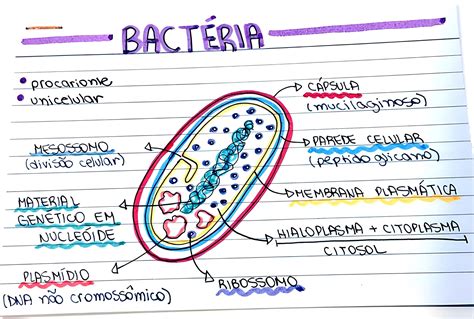 BACTÉRIA
procarionte
unicelular
CÁPSULA
(mucilaginoso)
MESOSSOMO
(divisão celular)
PAREDE CELULAR
(peptidoglicano)
MATERIAL
GENÉTICO EM
NUCLEÓIDE
MEMBRANA PLASMÁTICA
HIALOPLASMA + CITOPLASMA
CITOSOL
PLASMÍDIO
(DNA não cromossômico)
RIBOSSOMO